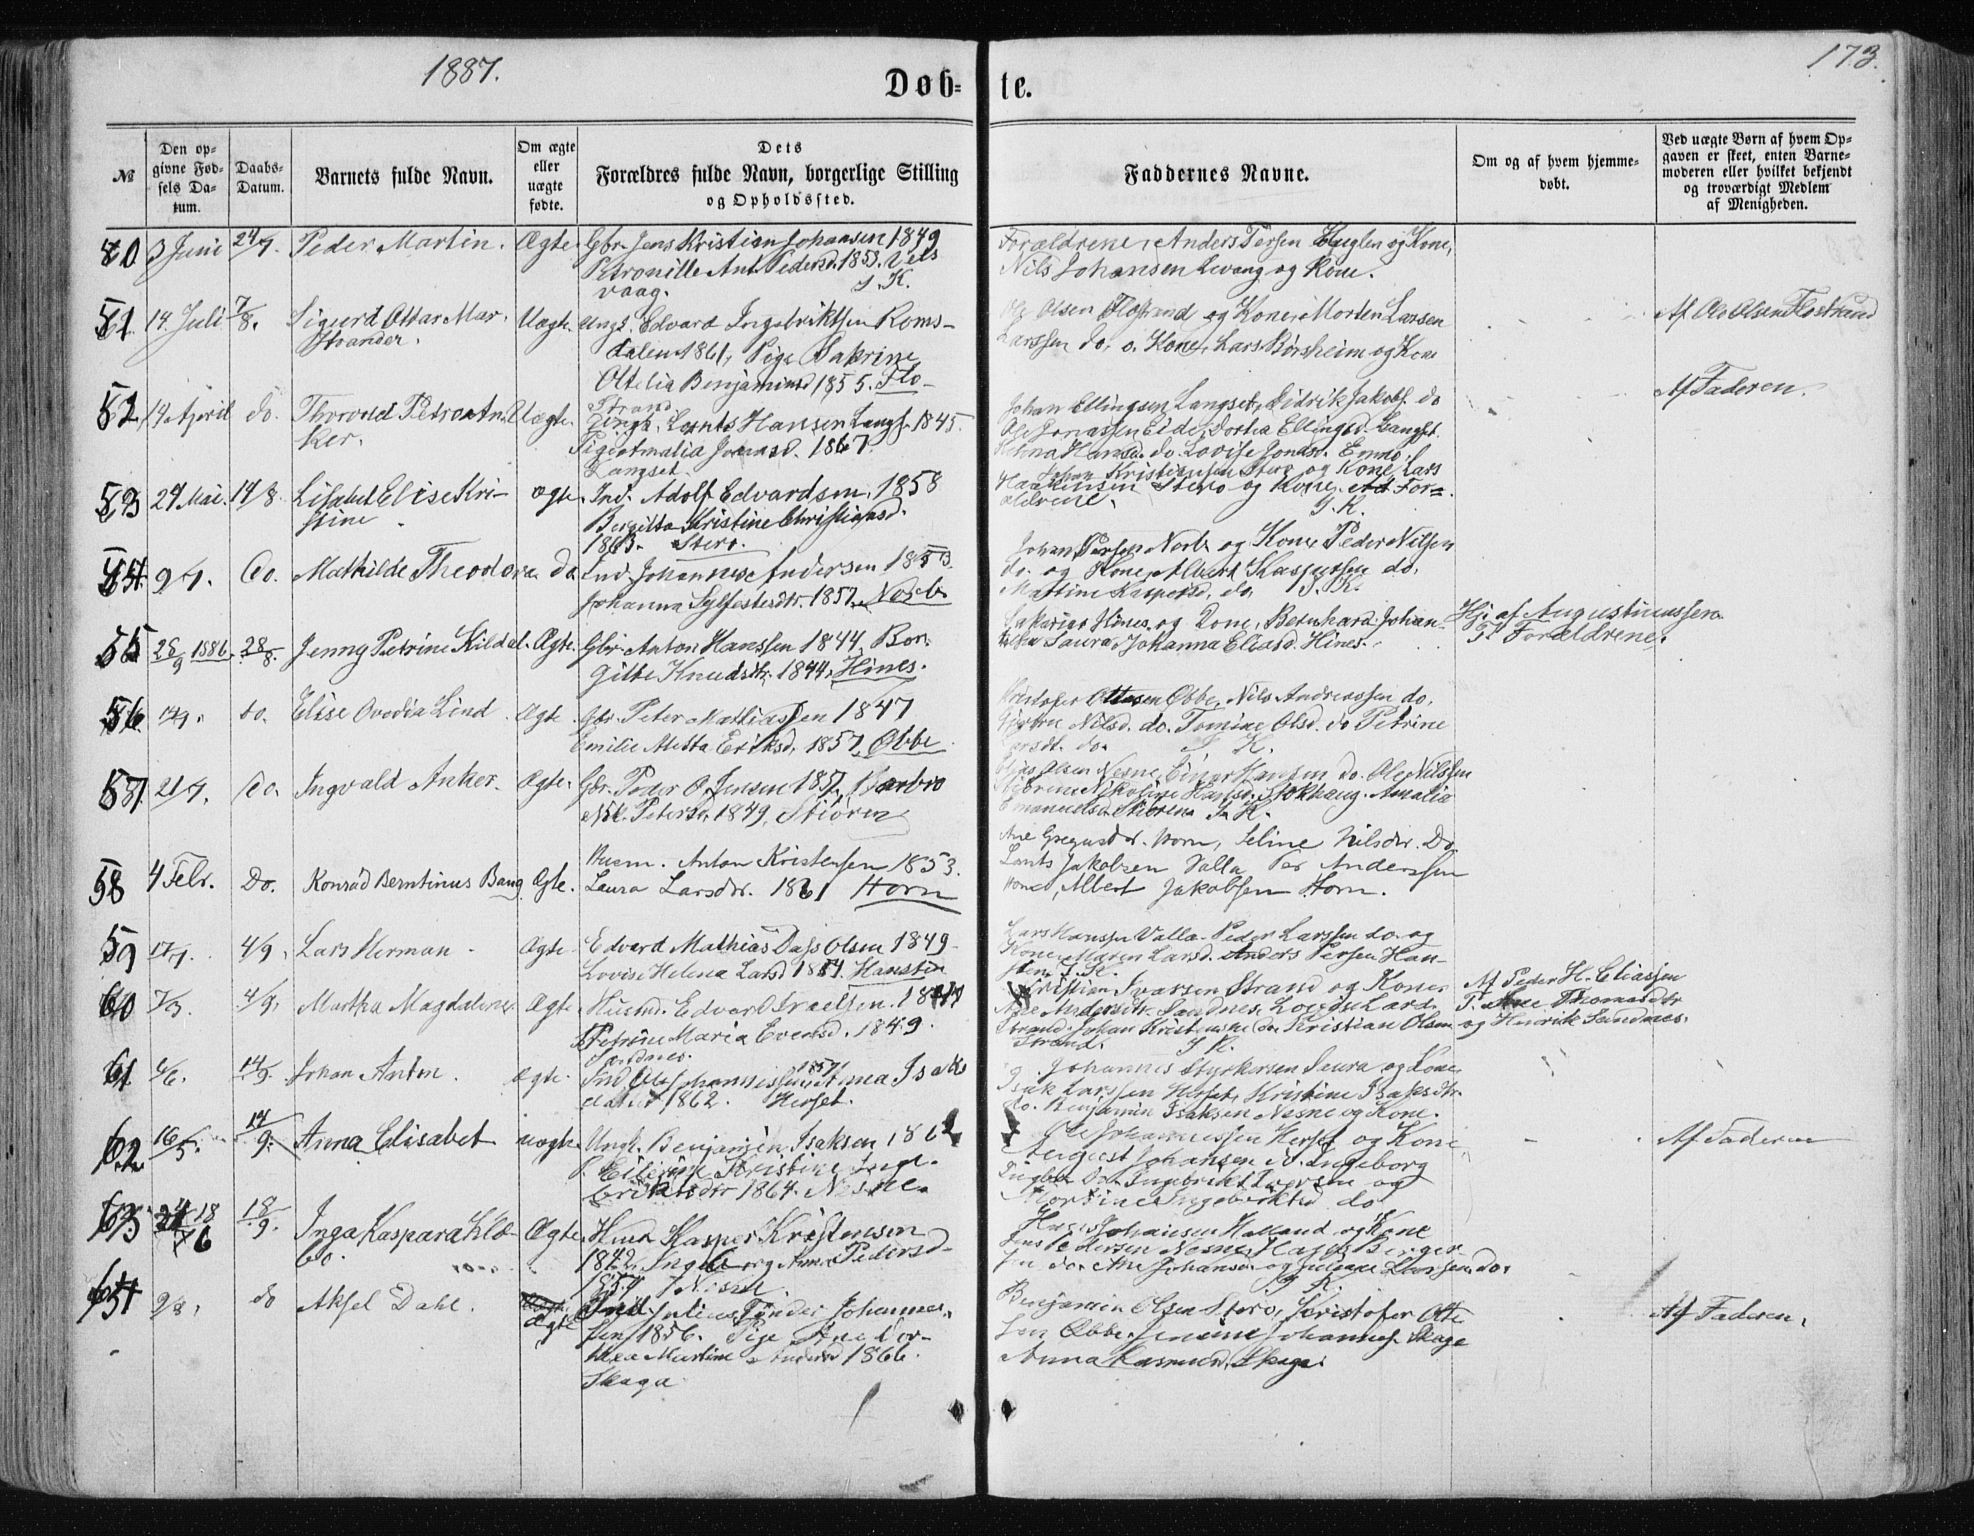 1887.
173.
Døb-
te.
№
Den op-
givne Fød-
sels Da-
tum.
Daabs-
Datum.
Barnets fulde Navn.
Om ægte
eller
uægte
fødte.
Dets
Forældres fulde Navn, borgerlige Stilling
og Opholdssted.
Faddernes Navne.
Om og af hvem hjemme-
døbt.
Ved uægte Børn af hvem Op-
gaven er skeet, enten Barne-
moderen eller hvilket bekjendt
og troværdigt Medlem
af Menigheden.
3 Juni 24/7. Peder Martin. Ægte. Gbr. Jens Kristian Johansen 1849
Petronille Ant. Pedersd. 1853. Vels
vaag. I. K.
Forældrene, Anders Persen Huglen og Kone,
Nils Johansen Levang og Kone.
51 14 Juli 7/8. Sigurd Ottar Mar- Uægte. Ungk. Edvard Ingebriktsen Roms-
strander.
dalen 1861, Pige Sakrine
Ottelia Benjaminsd 1855. Flo-
strand
Ole Olsen Flostrand og Kone, Morten Larsen
Larssen do. o. Kone, Lars Børsheim og Kone
Af Ole Olsen Flostrand
52 14 April do. Thorvald Petræus An- Uægte. Hansen Langs. 1845.
ker.
1867.
Langset
Johan Ellingsen Langset, Didrik Jakobs. do
Ole Jonassen Eide, Dortea Ellingsd. Langset
do. Lovise
Af Faderen.
53 29 Mai. 14/8. Elise Kri- Ægte. Ind. Adolf Edvardsen, 1858
stine
Bergitta Kristine Christiansd.
1863. Stero.
Johan Kristiansen Stero og Kone, Lars
Haakensen Stero og Kone. For=
ældrene. I. K.
54 9/7. Do. Mathilde Theodora do. Ind. Johannes Andersen 1853.
Johanna Sylfestersdtr. 1857.
Johan og Kone, Peder Nilsen
do. og Kone, Albert Kaspersen do.
Martine Kaspersd. do. I. K.
55 28/9 1886. 28/8. Jenny Petrine Kildal. Ægte. Gbr. Anton Hanssen 1844, Ber-
gitte Knudsdtr. 1844, Hines.
Sakarias Hines og Kone, Bernhard Johan-
Laura, Johanna Eliasd. Hines.
Hj. af Augustinussen
Forældrene.
56 do. Elise Ovedia Lind Ægte. Gbr. Peter Mathiassen 1847
Emilie Metta Eriksd. 1857, Obbe
Kristofer Ottesen Obbe, Nils Andreassen do.
Nilsd. do. Tomine Olsd. do Petrine
Larsdt. do. I. K.
57 21/7. Do. Ingvald Anker. Ægte. Gbr. Peder O. Jensen 1857, Barbro
Nik. Petersd. 1849, Stioren
Olsen Nesne, Einar Hansen do. Ole Nilssen
Stioren, Nikoline Stokhaug. Amalia
Emanuelsd. Stioren. I. K.
58 4 Febr. Do. Konrad Berntinus Bang Ægte. Husm. Anton Kristensen 1853.
Laura Larsdtr. 1861 Horn
Ane Gregusdtr. Horn, Seline Nilsdtr. Do.
Lents Jakobsen Valla Per Anderssen
Horn, Albert Jakobsen Horn.
59 17/7. 4/9. Lars Herman. Ægte. Edvard Mathias Dass Olsen 1849
Lovise Helena Larsd 1857. Hansten
Lars Hanssen Valla. Peder Larssen do. og
Kone, Maren Larsd. Anders Persen Han-
sten. I. K.
60 7/3. 4/9. Martha Magdalene. Ægte. Husmd. Edvard Israelsen. 1847
Petrine Maria Evensd. 1849.
Sandnes.
Kristian Ivarsen Strand og Kone
Ane Andersdtr. Sandnes, Lovise Larsd.
Strand. Johan Kristenssen do. Kristian Olsen
Strand. I. K.
Af Peder H. Eliassen
T. Ane Thomasdtr
og Henrik Sandnes.
61 4/6. 14/9. Johan Anton. Ægte. Ind. Ole Johannissen 1857 Isaks
datter 1862. Herset.
Johannes Styrkersen Seura og Kone
Isak Larssen Herset, Kristine Isaksdtr.
do. Benjamin Isaksen Nesne og Kone.
62 16/5. 14/9. Anna Elisabet uægte Ungk. Benjamin Isaksen 1862
P. Kristine Inge-
briktsdtr 1864. Nesne.
Ole Johannessen Herset og Kone
August Johansen N. Ingeborg
do. Ingebrikt Iversen og
Martine Ingebriktsd. do
Af Faderen
63 18/6 18/9. Inga Kaspara Klæ- Ægte. Kasper Kristensen
bo.
1842, Ingeborg Anna Pedersd-
1850 Nesne.
Hans Johansen Halland og Kone
Jens Pedersen Nesne, Hans Berger-
sen do. Ane Johansd. og Juliane Larsen do.
I. K.
9/8. do Aksel Dahl. Ægte Ind. Julius Tønder Johannes-
sen 1856. Pige Ane Dor-
thea Martine Andersd 1866.
Skaga
Benjamin Olsen Stero, Kristofer Otte-
sen Obbe. Jensine Johannes. Skaga
Anna Rasmusd. Skaga.
Af Faderen.